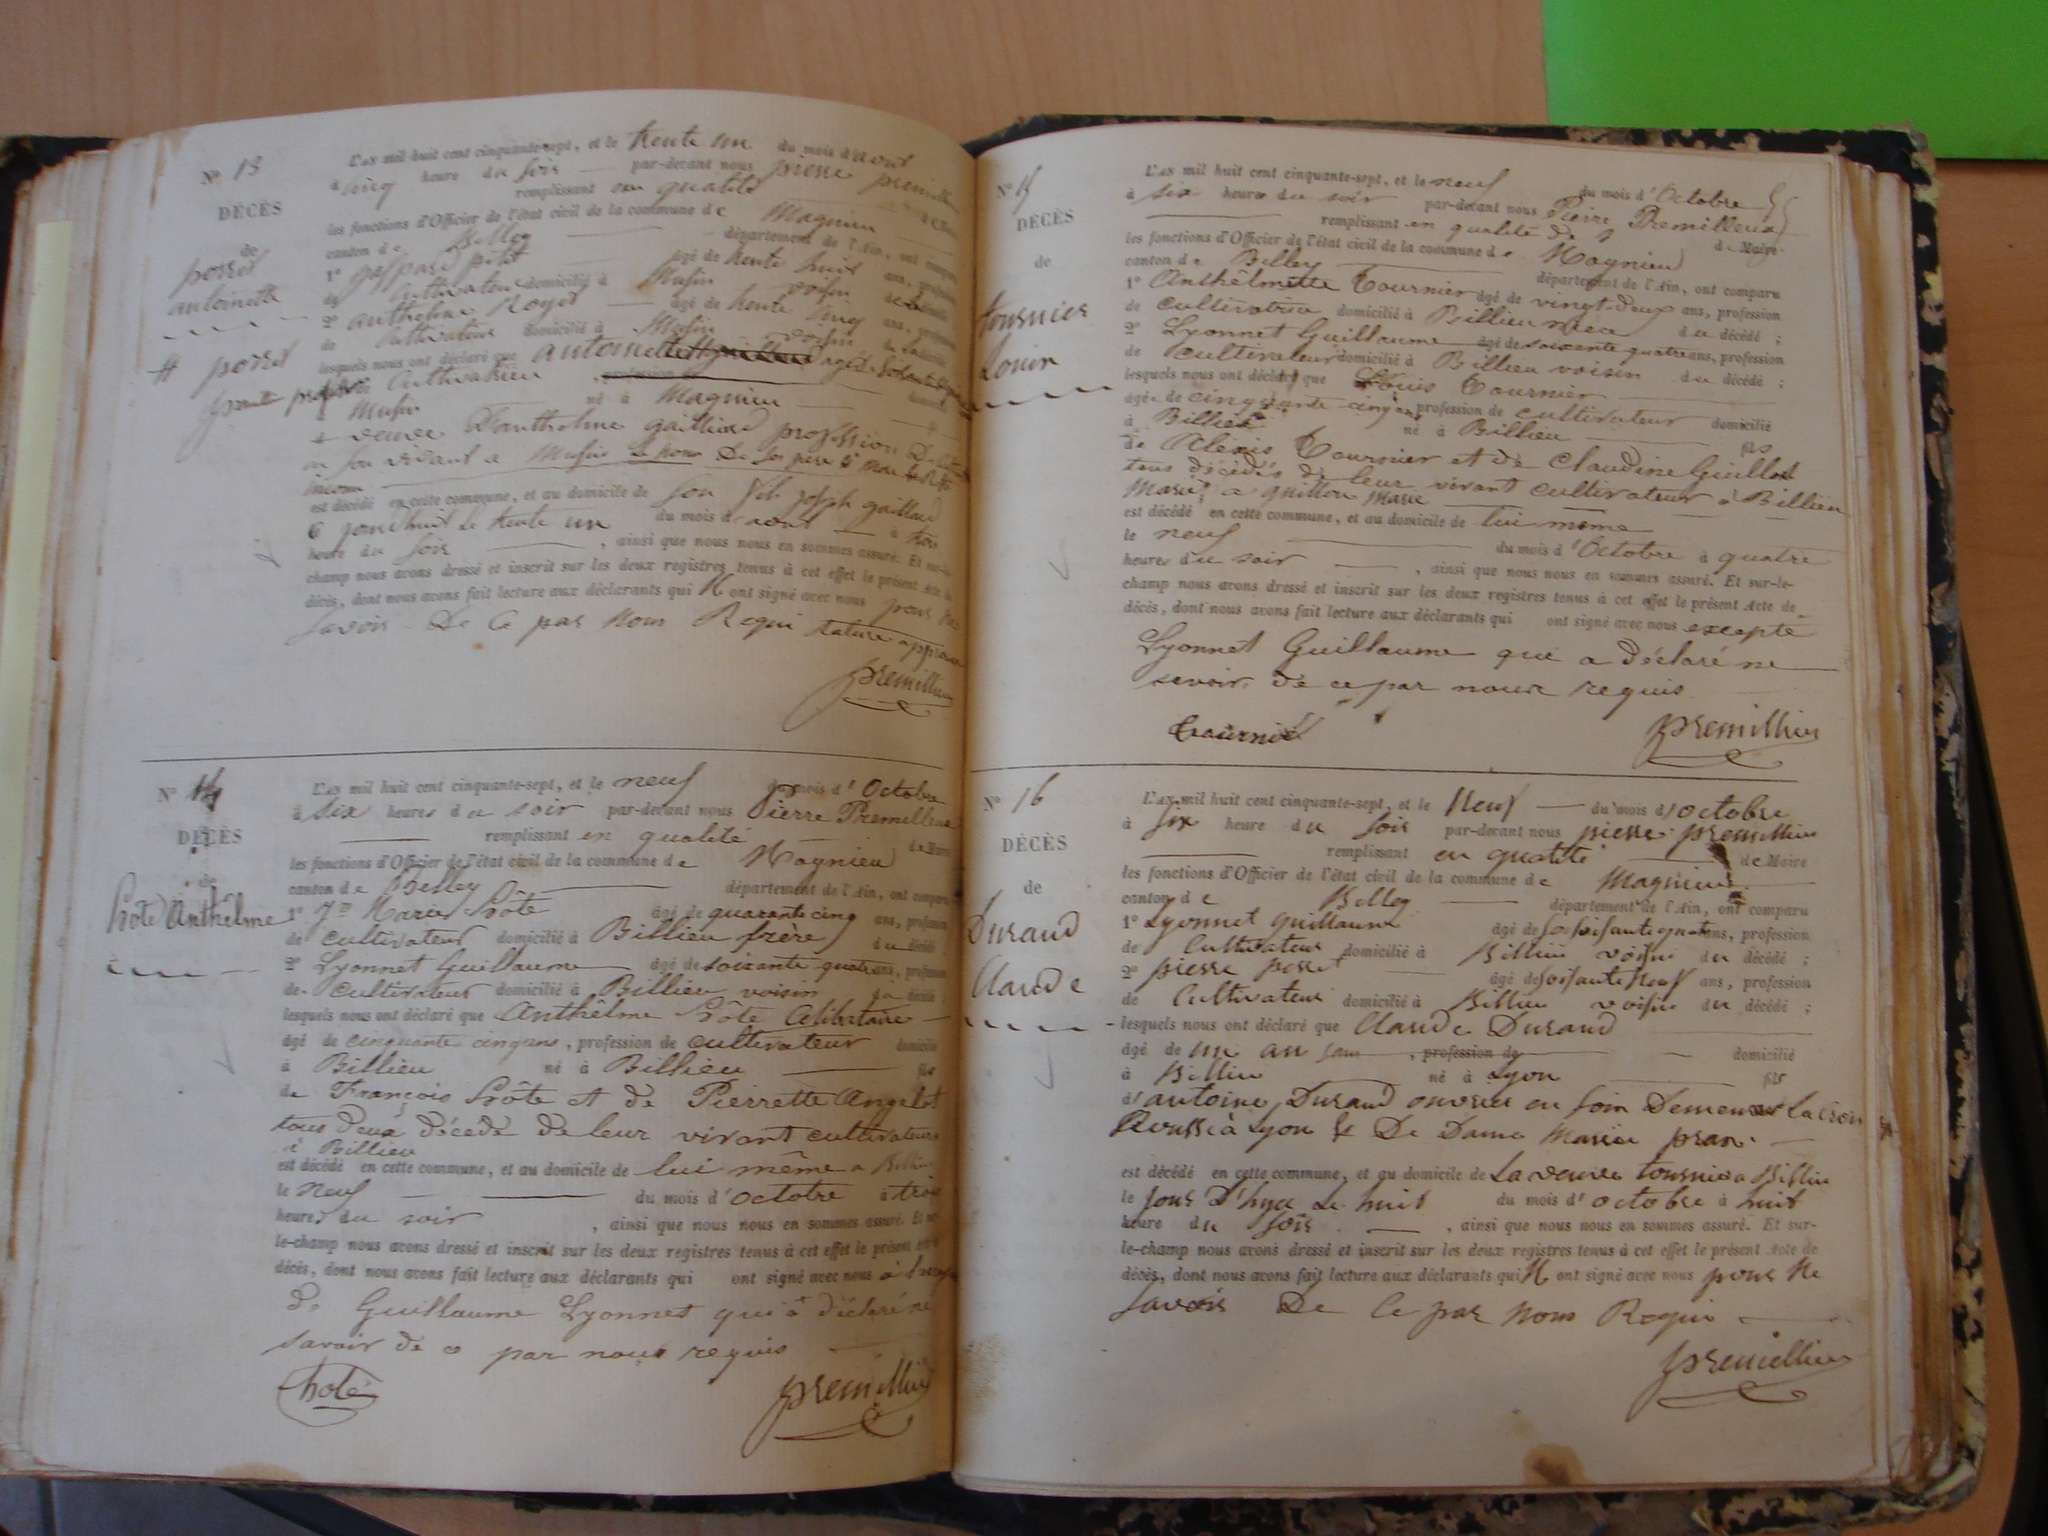 N° 13
DÉCÈS
de
porret
antoinette
# porret
L'AN mil huit cent cinquante-sept, et le trente un du mois d'aout
à cinq heure du soir par-devant nous pierre premillieu
remplissant en qualité
les fonctions d'Officier de l'état civil de la commune de Magnieu
canton de Belley département de l'Ain, ont comparu
1° gaspard petit âgé de trente huit ans, profession
de Cultivateur domicilié à Musin voisin de la
2° anthelme Roger âgé de trente cinq ans, profession
de Cultivateur domicilié à Musin voisin de la
lesquels nous ont déclaré que antoinette agée
Cultivatrice
à Musin né à Magnieu
veuve D'anthelme gaillard profession De
en son vivant a Musin Le nom De Ses père & mère
est décédé en cette commune, et au domicile de son fils joseph gaillard
jourdhuit Le trente un du mois d'aout à
heure du soir , ainsi que nous nous en sommes assuré. Et sur-le-
champ nous avons dressé et inscrit sur les deux registres tenus à cet effet le présent Acte de
décès, dont nous avons fait lecture aux déclarants qui N ont signé avec nous pour ne
savoir De Ce par Nous Requi
premillieu
N° 14
DÉCÈS
de
Chote Anthelme
L'AN mil huit cent cinquante-sept, et le neuf du mois d'Octobre
à six heures du soir par-devant nous Pierre Premillieu
remplissant en qualité de Maire
les fonctions d'Officier de l'état civil de la commune de Magnieu
canton de Belley département de l'Ain, ont comparu
1° Jn Marie Chôte âgé de quarante cinq ans, profession
de cultivateur domicilié à Billieu frère du décédé
2° Lyonnet Guillaume âgé de soixante quatre ans, profession
de cultivateur domicilié à Billieu voisin du décédé
lesquels nous ont déclaré que Anthêlme Chôte Célibataire
âgé de cinquante cinq ans, profession de cultivateur domicilié
à Billieu né à Billieu fils
de François Chôte et de Pierrette Angelot
tous deux décédé de leur vivant cultivateurs
à Billieu
est décédé en cette commune, et au domicile de lui même a Billieu
le neuf du mois d'Octobre à trois
heures du soir , ainsi que nous nous en sommes assuré. Et sur-
le-champ nous avons dressé et inscrit sur les deux registres tenus à cet effet le présent acte de
décès, dont nous avons fait lecture aux déclarants qui ont signé avec nous à l'exception
de Guillaume Lyonnet qui a déclaré ne
savoir de ce par nous requis
Chote
premillieu
N° 15
DÉCÈS
de
tournier
Louis
L'AN mil huit cent cinquante-sept, et le neuf du mois d'Octobre
à six heures du soir par-devant nous Pierre Premillieu
remplissant en qualité de de Maire
les fonctions d'Officier de l'état civil de la commune de Magnieu
canton de Belley département de l'Ain, ont comparu
1° Anthêlmette Tournier âgé de vingt-deux ans, profession
de cultivatrice domicilié à Billieu niece du décédé ;
2° Lyonnet Guillaume âgé de soixante quatre ans, profession
de cultivateur domicilié à Billieu voisin du décédé ;
lesquels nous ont déclaré que Louis Tournier
âgé de cinquante-cinq ans profession de cultivateur domicilié
à Billieu né à Billieu fils
de Alexis Tournier et de Claudine Guillot
tous décédés de leur vivant cultivateur à Billieu
Marié a Guillon Marie
est décédé en cette commune, et au domicile de lui même
le neuf du mois d'Octobre à quatre
heures du soir , ainsi que nous nous en sommes assuré. Et sur-le-
champ nous avons dressé et inscrit sur les deux registres tenus à cet effet le présent Acte de
décès, dont nous avons fait lecture aux déclarants qui ont signé avec nous excepté
Lyonnet Guillaume qui a déclaré ne
savoir de ce par nous requis
Tournier
premillieu
N° 16
DÉCÈS
de
Durand
Claude
L'AN mil huit cent cinquante-sept, et le Neuf du mois d'octobre
à Six heure du soir par-devant nous pierre premillieu
remplissant en qualité de Maire
les fonctions d'Officier de l'état civil de la commune de Magnieu
canton de Belley département de l'Ain, ont comparu
1° Lyonnet guillaume âgé de soisante quatre ans, profession
de Cultivateur domicilié à Billieu voisin du décédé ;
2° pierre porret âgé de soisante Neuf ans, profession
de Cultivateur domicilié à Billieu voisin du décédé ;
lesquels nous ont déclaré que Claude Durand
âgé de un an , profession de domicilié
à Billieu né à Lyon fils
d'antoine Durand ouvrier en soin Demeurant La Croix
Rousse à Lyon & De Dame Mariee
est décédé en cette commune, et au domicile de La veuve tournier a Billieu
le Jour D'hyer Le huit du mois d'octobre à huit
heure du soir , ainsi que nous nous en sommes assuré. Et sur-
le-champ nous avons dressé et inscrit sur les deux registres tenus à cet effet le présent Acte de
décès, dont nous avons fait lecture aux déclarants qui N ont signé avec nous pour Ne
savoir De Ce par Nous Requis
premillieu